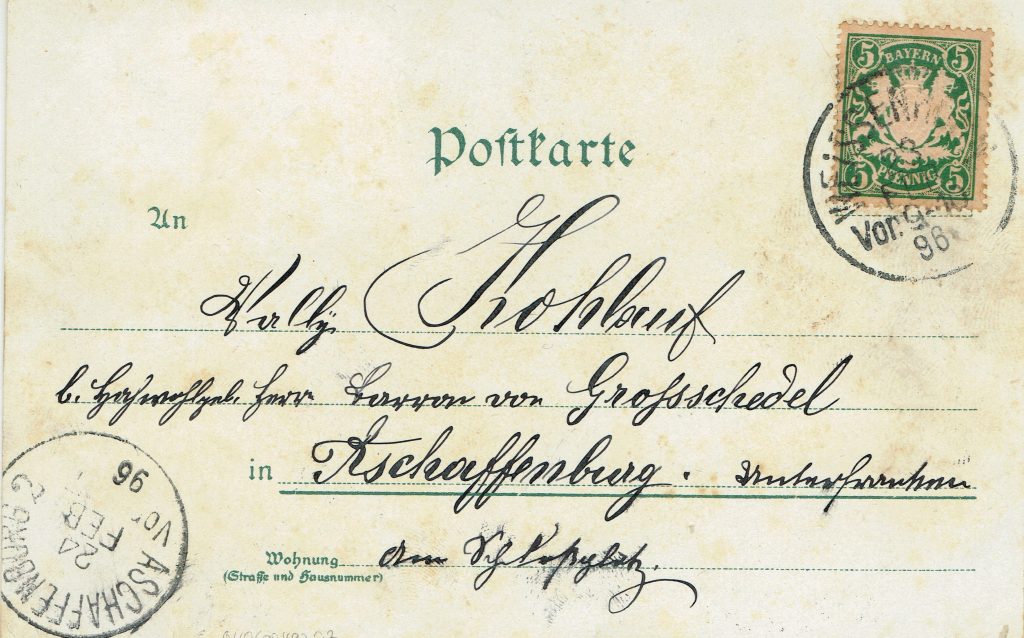 5 BAYERN 5
5 PFENNIG 5
23
Vor.
96
Postkarte
An
Wally Kohlauf
b. Hochwohlgeb. Herrn Barron von Grossschedel
in Aschaffenburg. Unterfranken
Wohnung am Schloßplatz.
(Strasse und Hausnummer)
ASCHAFFENBURG 2
24
FEB
Vor
96